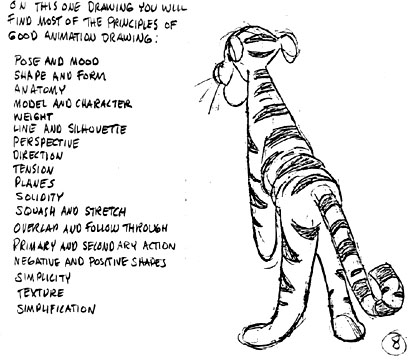 ON THIS ONE DRAWING YOU WILL
FIND MOST OF THE PRINCIPLES OF
GOOD ANIMATION DRAWING:
POSE AND MOOD
SHAPE AND FORM
ANATOMY
MODEL AND CHARACTER
WEIGHT
LINE AND SILHOUETTE
PERSPECTIVE
DIRECTION
TENSION
PLANES
SOLIDITY
SQUASH AND STRETCH
OVERLAP AND FOLLOW THROUGH
PRIMARY AND SECONDARY ACTION
NEGATIVE AND POSITIVE SHAPES
SIMPLICITY
TEXTURE
SIMPLIFICATION
8